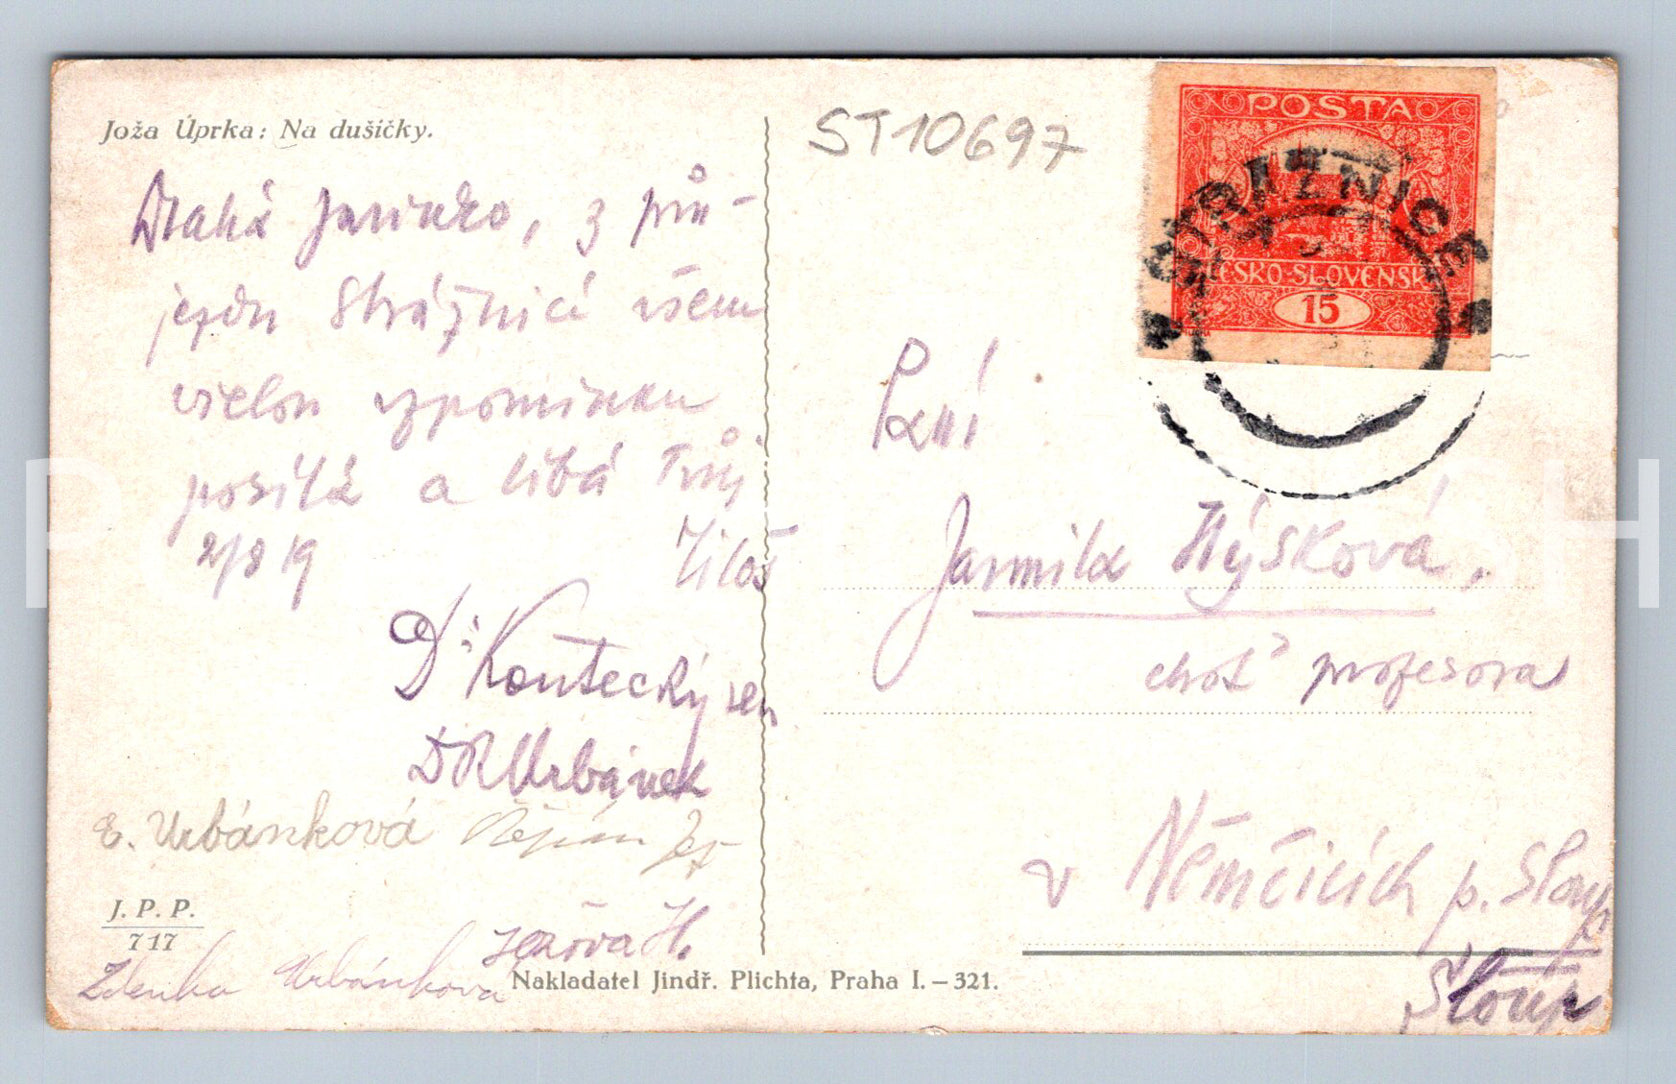 Joža Úprka: Na dušičky.
ST10697
POSTA
ČESKO-SLOVENSKÁ
15
STRÁŽNICE
Drahá Jarinko, z prů-
jezdu Strážnicí všem
vřelou vzpomínku
posílá a líbá Tvůj
2/8 19 Miloš
Dr. Koutecký sen
DR Urbánek
E. Urbánková
H.
Zdenka Urbánkova
J. P. P.
717
Nakladatel Jindř. Plichta, Praha I. – 321.
Paní
Jarmila Hýsková,
choť profesora
v Němčicích p. Sloup
Sloup